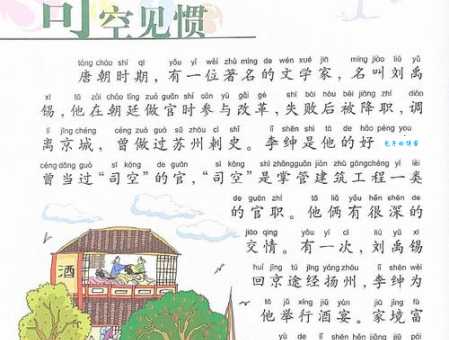 司空见惯
táng cháo shí qī yǒu yī wèi zhù míng de wén xué jiā míng jiào liú yǔ
唐朝时期，有一位著名的文学家，名叫刘禹
xī tā zài cháo tíng zuò guān shí cān yù gǎi gé shī bài hòu bèi jiàng zhí diào
锡，他在朝廷做官时参与改革，失败后被降职，调
lí jīng chéng céng zuò guò sū zhōu cì shǐ lǐ shēn shì tā de hǎo péng you
离京城，曾做过苏州刺史。李绅是他的好
céng dāng guò sī kōng de guān sī kōng shì zhǎng guǎn jiàn zhù gōng chéng yī lèi
曾当过“司空”的官，“司空”是掌管建筑工程一类
de guān zhí tā liǎ yǒu hěn shēn de
的官职。他俩有很深的
jiāo qing yǒu yī cì liú yǔ xī
交情。有一次，刘禹锡
huí jīng tú jīng yáng zhōu lǐ shēn wèi
回京途经扬州，李绅为
tā jǔ xíng jiǔ yàn jiā jìng fù
他举行酒宴。家境富
酒